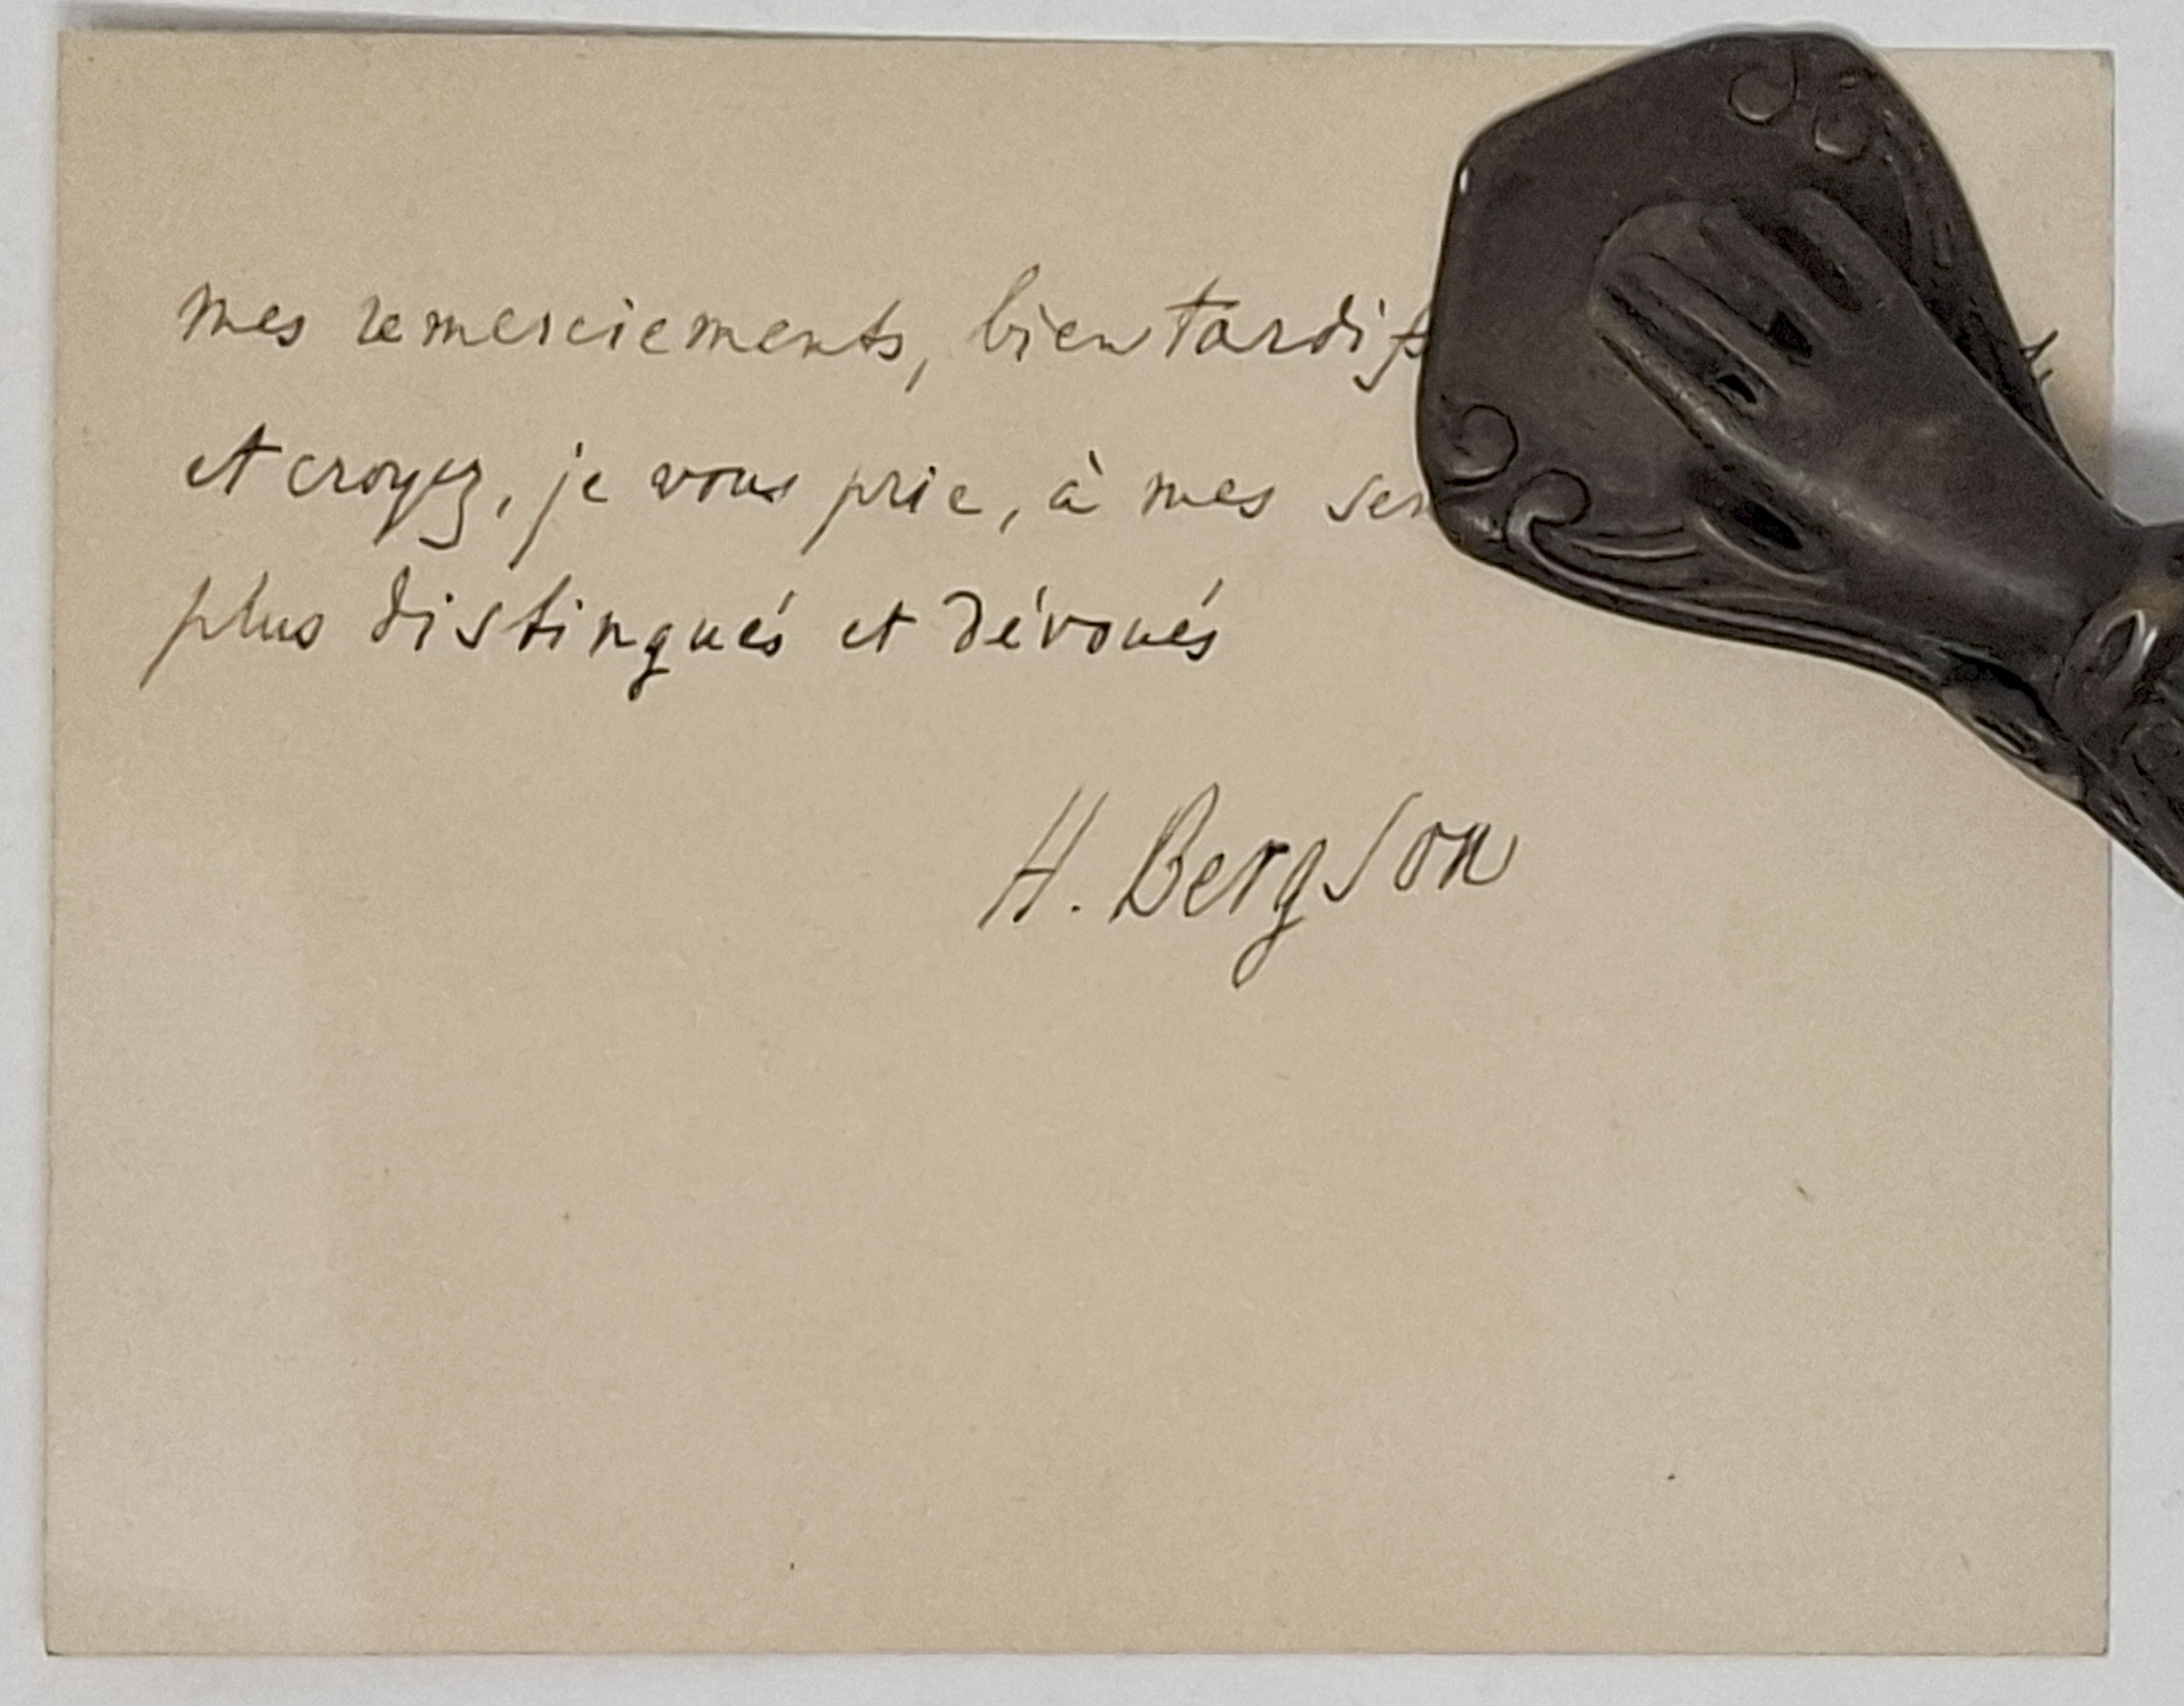 mes remerciements, bien tardifs
et croyez, je vous prie, à mes
plus distingués et dévoués
H. Bergson